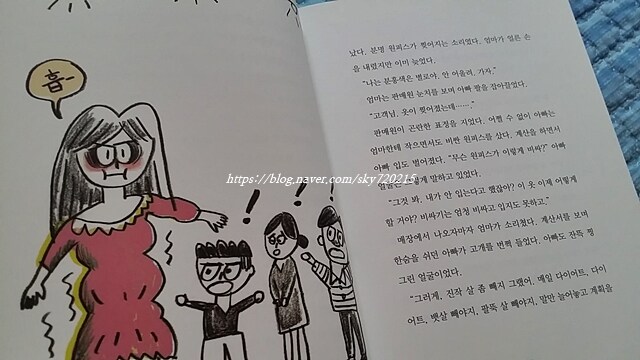 흡-
났다. 분명 원피스가 찢어지는 소리였다. 엄마가 얼른 손
을 내렸지만 이미 늦었다.
"나는 분홍색은 별로야. 안 어울려. 가자."
엄마는 판매원 눈치를 보며 아빠 팔을 잡아끌었다.
"고객님, 옷이 찢어졌는데……."
판매원이 곤란한 표정을 지었다. 어쩔 수 없이 아빠는
엄마한테 작으면서도 비싼 원피스를 샀다. 계산을 하면서
아빠 입도 벌어졌다. "무슨 원피스가 이렇게 비싸?" 아빠
얼굴은 그렇게 말하고 있었다.
https://blog.naver.com/sky720215
"그것 봐. 내가 안 입는다고 했잖아? 이 옷 이제 어떻게
할 거야? 비싸기는 엄청 비싸고 입지도 못하고."
매장에서 나오자마자 엄마가 소리쳤다. 계산서를 보며
한숨을 쉬던 아빠가 고개를 번쩍 들었다. 아빠도 잔뜩 찡
그린 얼굴이었다.
"그러게, 진작 살 좀 빼지 그랬어. 매일 다이어트, 다이
어트, 뱃살 빼야지, 팔뚝 살 빼야지, 말만 늘어놓고 계획을